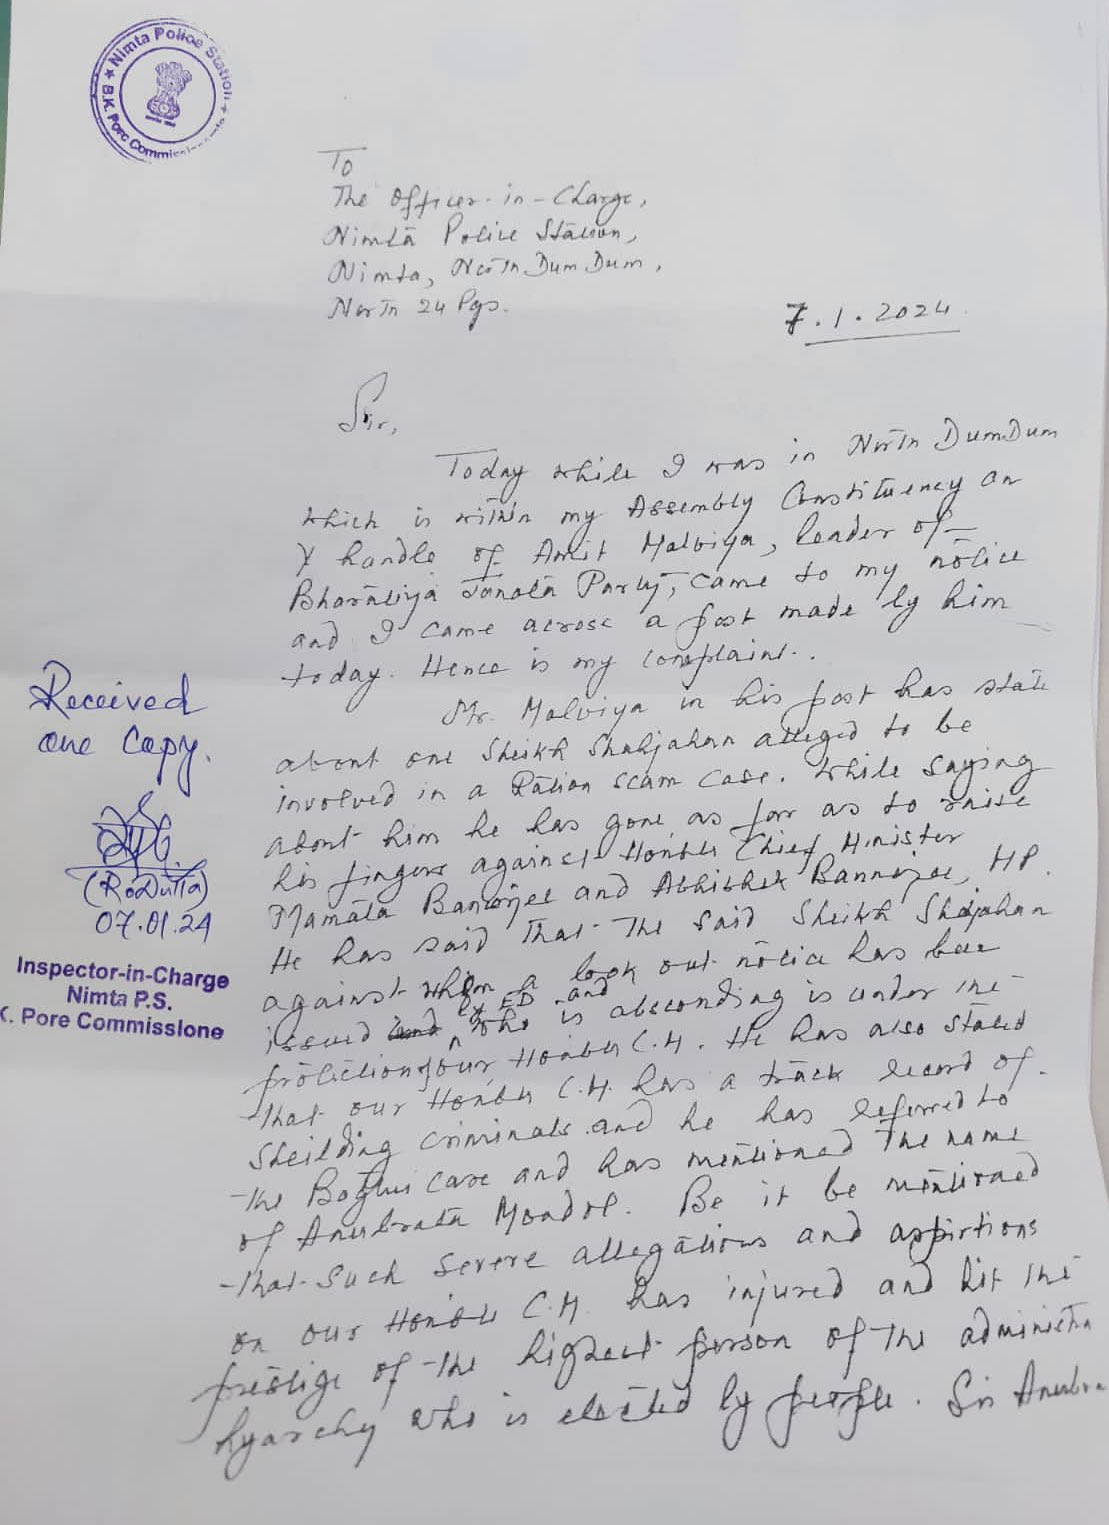 ★ Nimta Police Station ★
B.K. Pore Commissionerate
To
The Officer-in-Charge,
Nimta Police Station,
Nimta, North Dum Dum,
North 24 Pgs.
7.1.2024
Sir,
Today while I was in North DumDum
which is within my Assembly Constituency an
X handle of Amit Malviya, leader of
Bharatiya Janata Party, came to my notice
and I came across a post made by him
today. Hence is my complaint.
Mr. Malviya in his post has state
about one Sheikh Shahjahan alleged to be
involved in a Ration scam case. While saying
about him he has gone as far as to raise
his fingers against Honble Chief Minister
Mamata Banerjee and Abhishek Bannerjee, MP.
He has said that the said Sheikh Shajahan
against whom a look out notice has bee
issued by ED and who is absconding is under the
protection of our Honble C.M. He has also stated
that our Honble C.M. has a track record of
sheilding criminals and he has referred to
the Bogtui case and has mentioned the name
of Anubrata Mondol. Be it be mentioned
that such severe allegations and appirtions
on our Honble C.M. has injured and hit the
prestige of the highest person of the administra
hyarchy who is elected by people. Sir Anubra
Received
one Copy.
(R. Dutta)
07.01.24
Inspector-in-Charge
Nimta P.S.
K. Pore Commissione